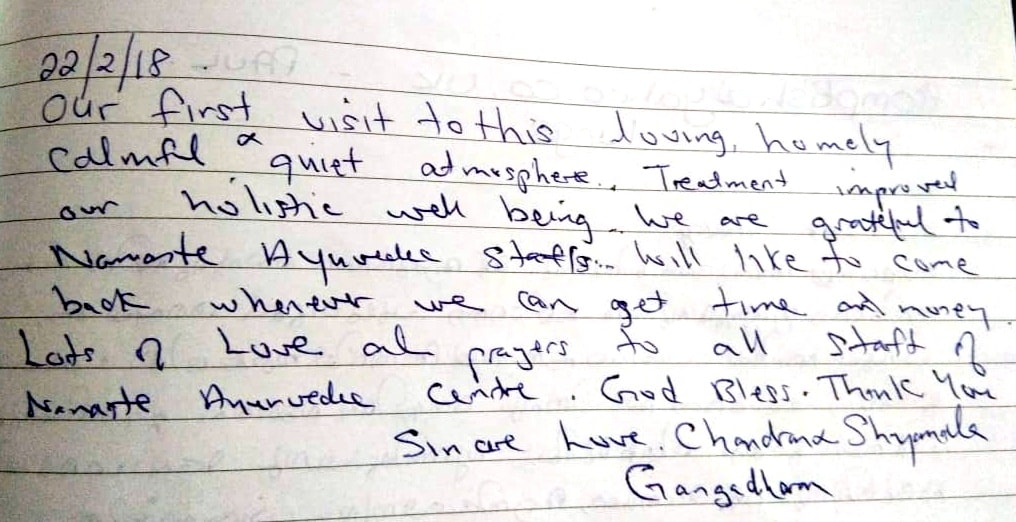 22/2/18.
Our first visit to this loving, homely
Calmful & quiet atmosphere. Treatment improved
our holistic well being. We are grateful to
Namaste Ayuvedic staffs. Will like to come
back whenever we can get time and money.
Lots of Love and prayers to all staff of
Namaste Ayurvedic Centre. God Bless. Thank You
Sincere Love. Chandra & Shyamala
Gangadharan